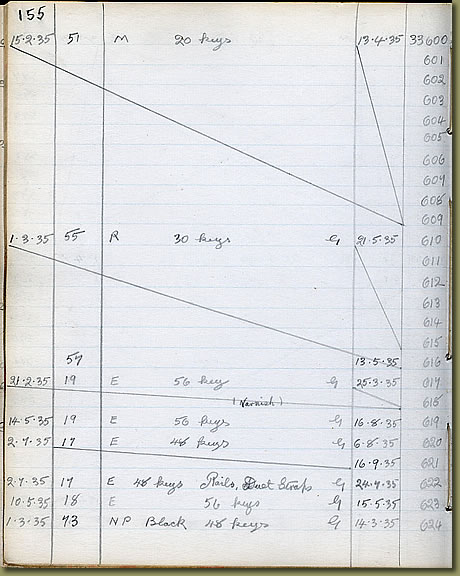 155
15.2.35 51 M 20 keys 13.4.35 33600
601
602
603
604
605
606
607
608
609
1.3.35 55 R 30 keys G 21.5.35 610
611
612
613
614
615
57 13.5.35 616
21.2.35 19 E 56 key G 25.3.35 617
(Varnish) 618
14.5.35 19 E 56 keys G 16.8.35 619
2.7.35 17 E 48 keys G 6.8.35 620
16.9.35 621
2.7.35 17 E 48 keys Rails, Duet Straps G 24.7.35 622
10.5.35 18 E 56 keys G 15.5.35 623
1.3.35 73 NP Black 48 keys G 14.3.35 624